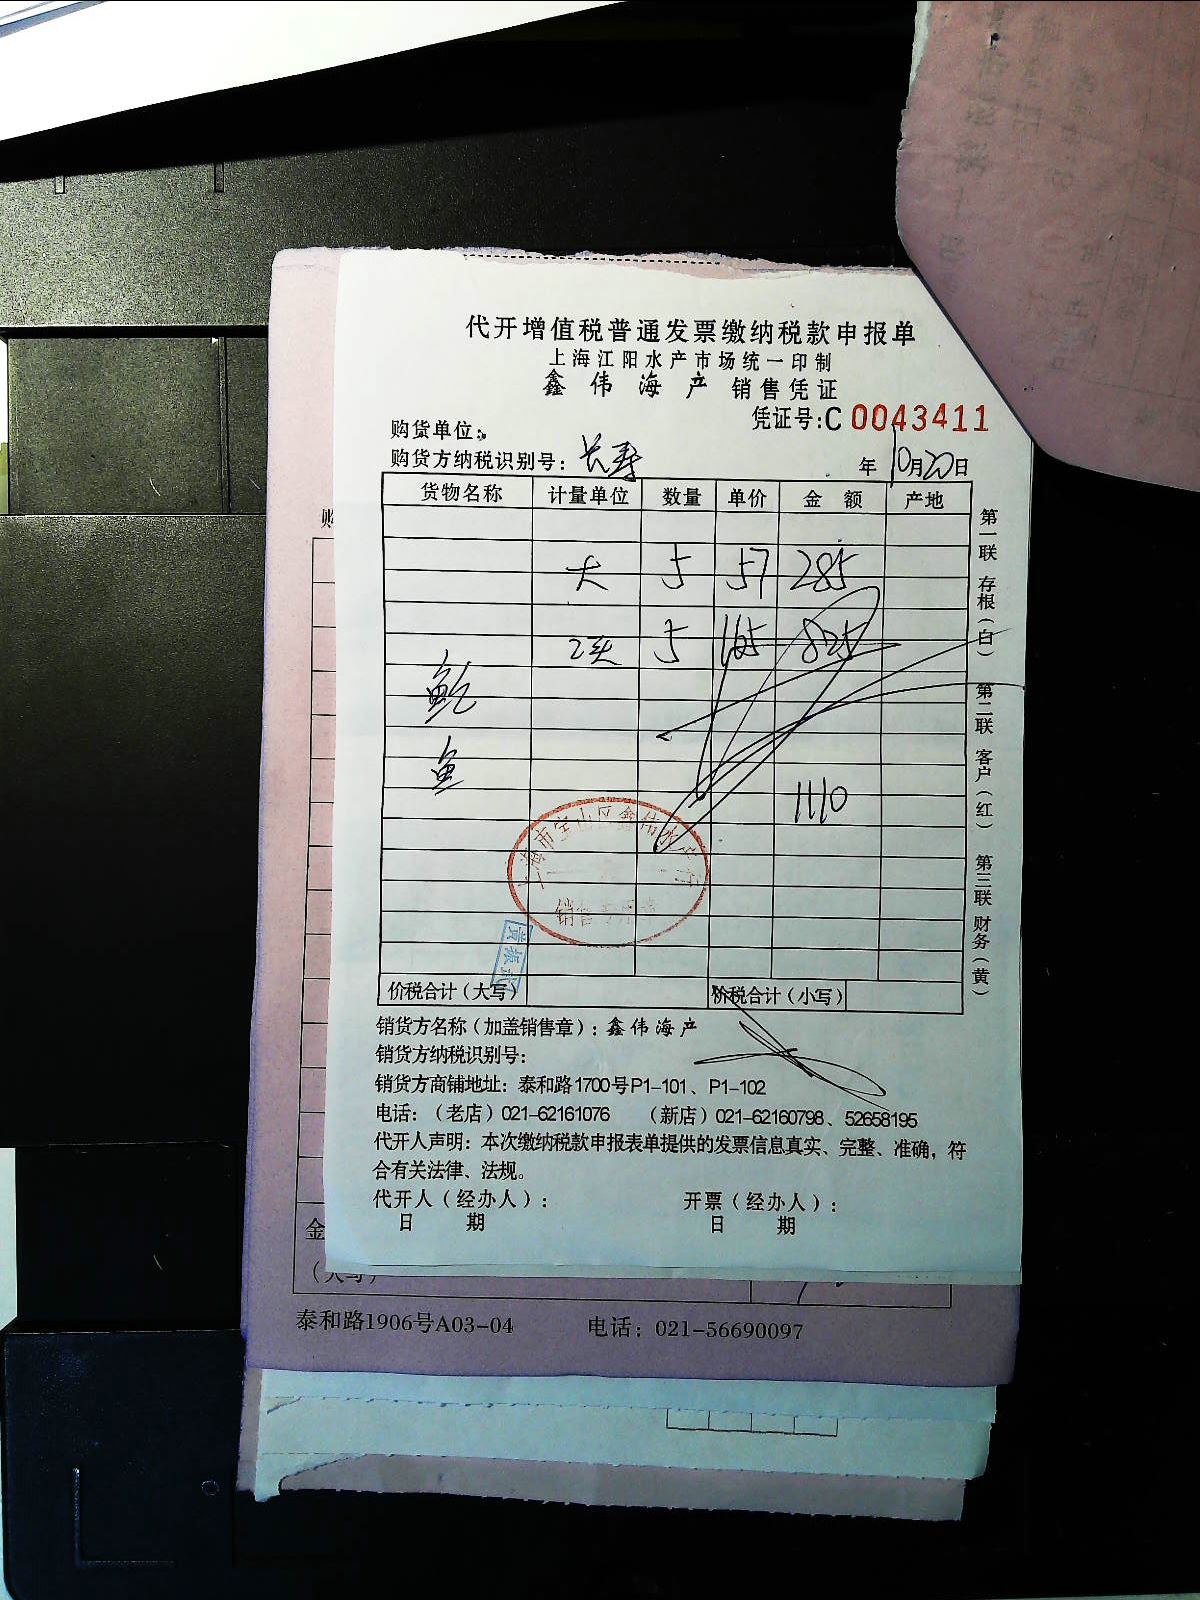 代开增值税普通发票缴纳税款申报单
上海江阳水产市场统一印制
鑫伟海产 销售凭证
凭证号:C 0043411
购货单位:
购货方纳税识别号: 长寿 年10月20日
货物名称 计量单位 数量 单价 金额 产地
大 5 57 285
2头 5 165 825
鲍
鱼
1110
上海市宝山区鑫伟水产行
销售专用章
黄振
价税合计(大写) 价税合计(小写)
销货方名称(加盖销售章): 鑫伟海产
销货方纳税识别号:
销货方商铺地址: 泰和路1700号P1-101、P1-102
电话: (老店)021-62161076 (新店)021-62160798、52658195
代开人声明: 本次缴纳税款申报表单提供的发票信息真实、完整、准确,符
合有关法律、法规。
代开人(经办人): 开票(经办人):
日 期 日 期
第一联 存根(白)
第二联 客户(红)
第三联 财务(黄)
购
金
(大写)
泰和路1906号A03-04 电话: 021-56690097